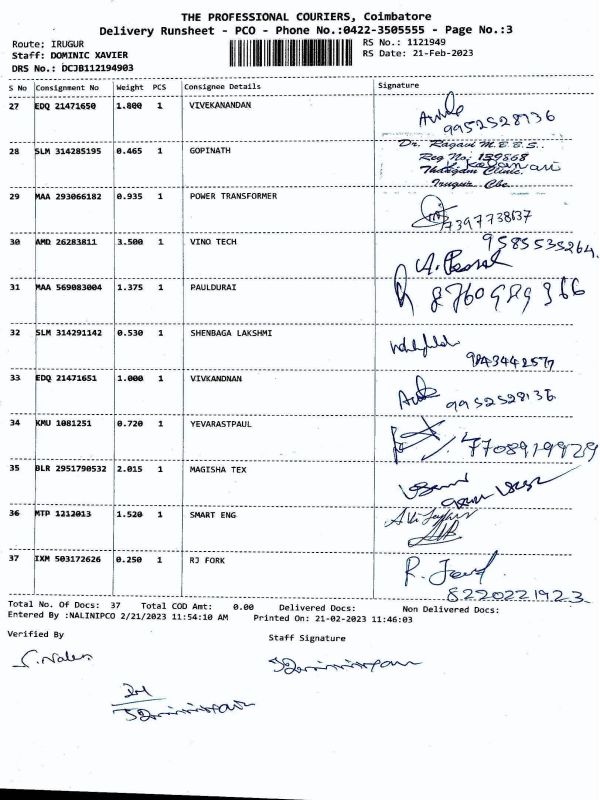 THE PROFESSIONAL COURIERS, Coimbatore
Delivery Runsheet - PCO - Phone No.:0422-3505555 - Page No.:3
Route: IRUGUR
RS No.: 1121949
Staff: DOMINIC XAVIER
RS Date: 21-Feb-2023
DRS No.: DCJB112194903
S No Consignment No Weight PCS Consignee Details Signature
27 EDQ 21471650 1.800 1 VIVEKANANDAN
9952528136
28 SLM 314285195 0.465 1 GOPINATH
Dr. Ragavi M.B.B.S.
Reg No: 139868
Thangam Clinic,
Irugur, Cbe.
29 MAA 293066182 0.935 1 POWER TRANSFORMER
30 AMD 26283811 3.500 1 VINO TECH
9585535264
31 MAA 569083004 1.375 1 PAULDURAI
32 SLM 314291142 0.530 1 SHENBAGA LAKSHMI
9843442577
33 EDQ 21471651 1.000 1 VIVKANDNAN
9952528136
34 KMU 1081251 0.720 1 YEVARASTPAUL
7708919929
35 BLR 2951790532 2.015 1 MAGISHA TEX
36 MTP 1212013 1.520 1 SMART ENG
37 IXM 503172626 0.250 1 RJ FORK
8220221923
Total No. Of Docs: 37 Total COD Amt: 0.00 Delivered Docs: Non Delivered Docs:
Entered By :NALINIPCO 2/21/2023 11:54:10 AM Printed On: 21-02-2023 11:46:03
Verified By
Staff Signature